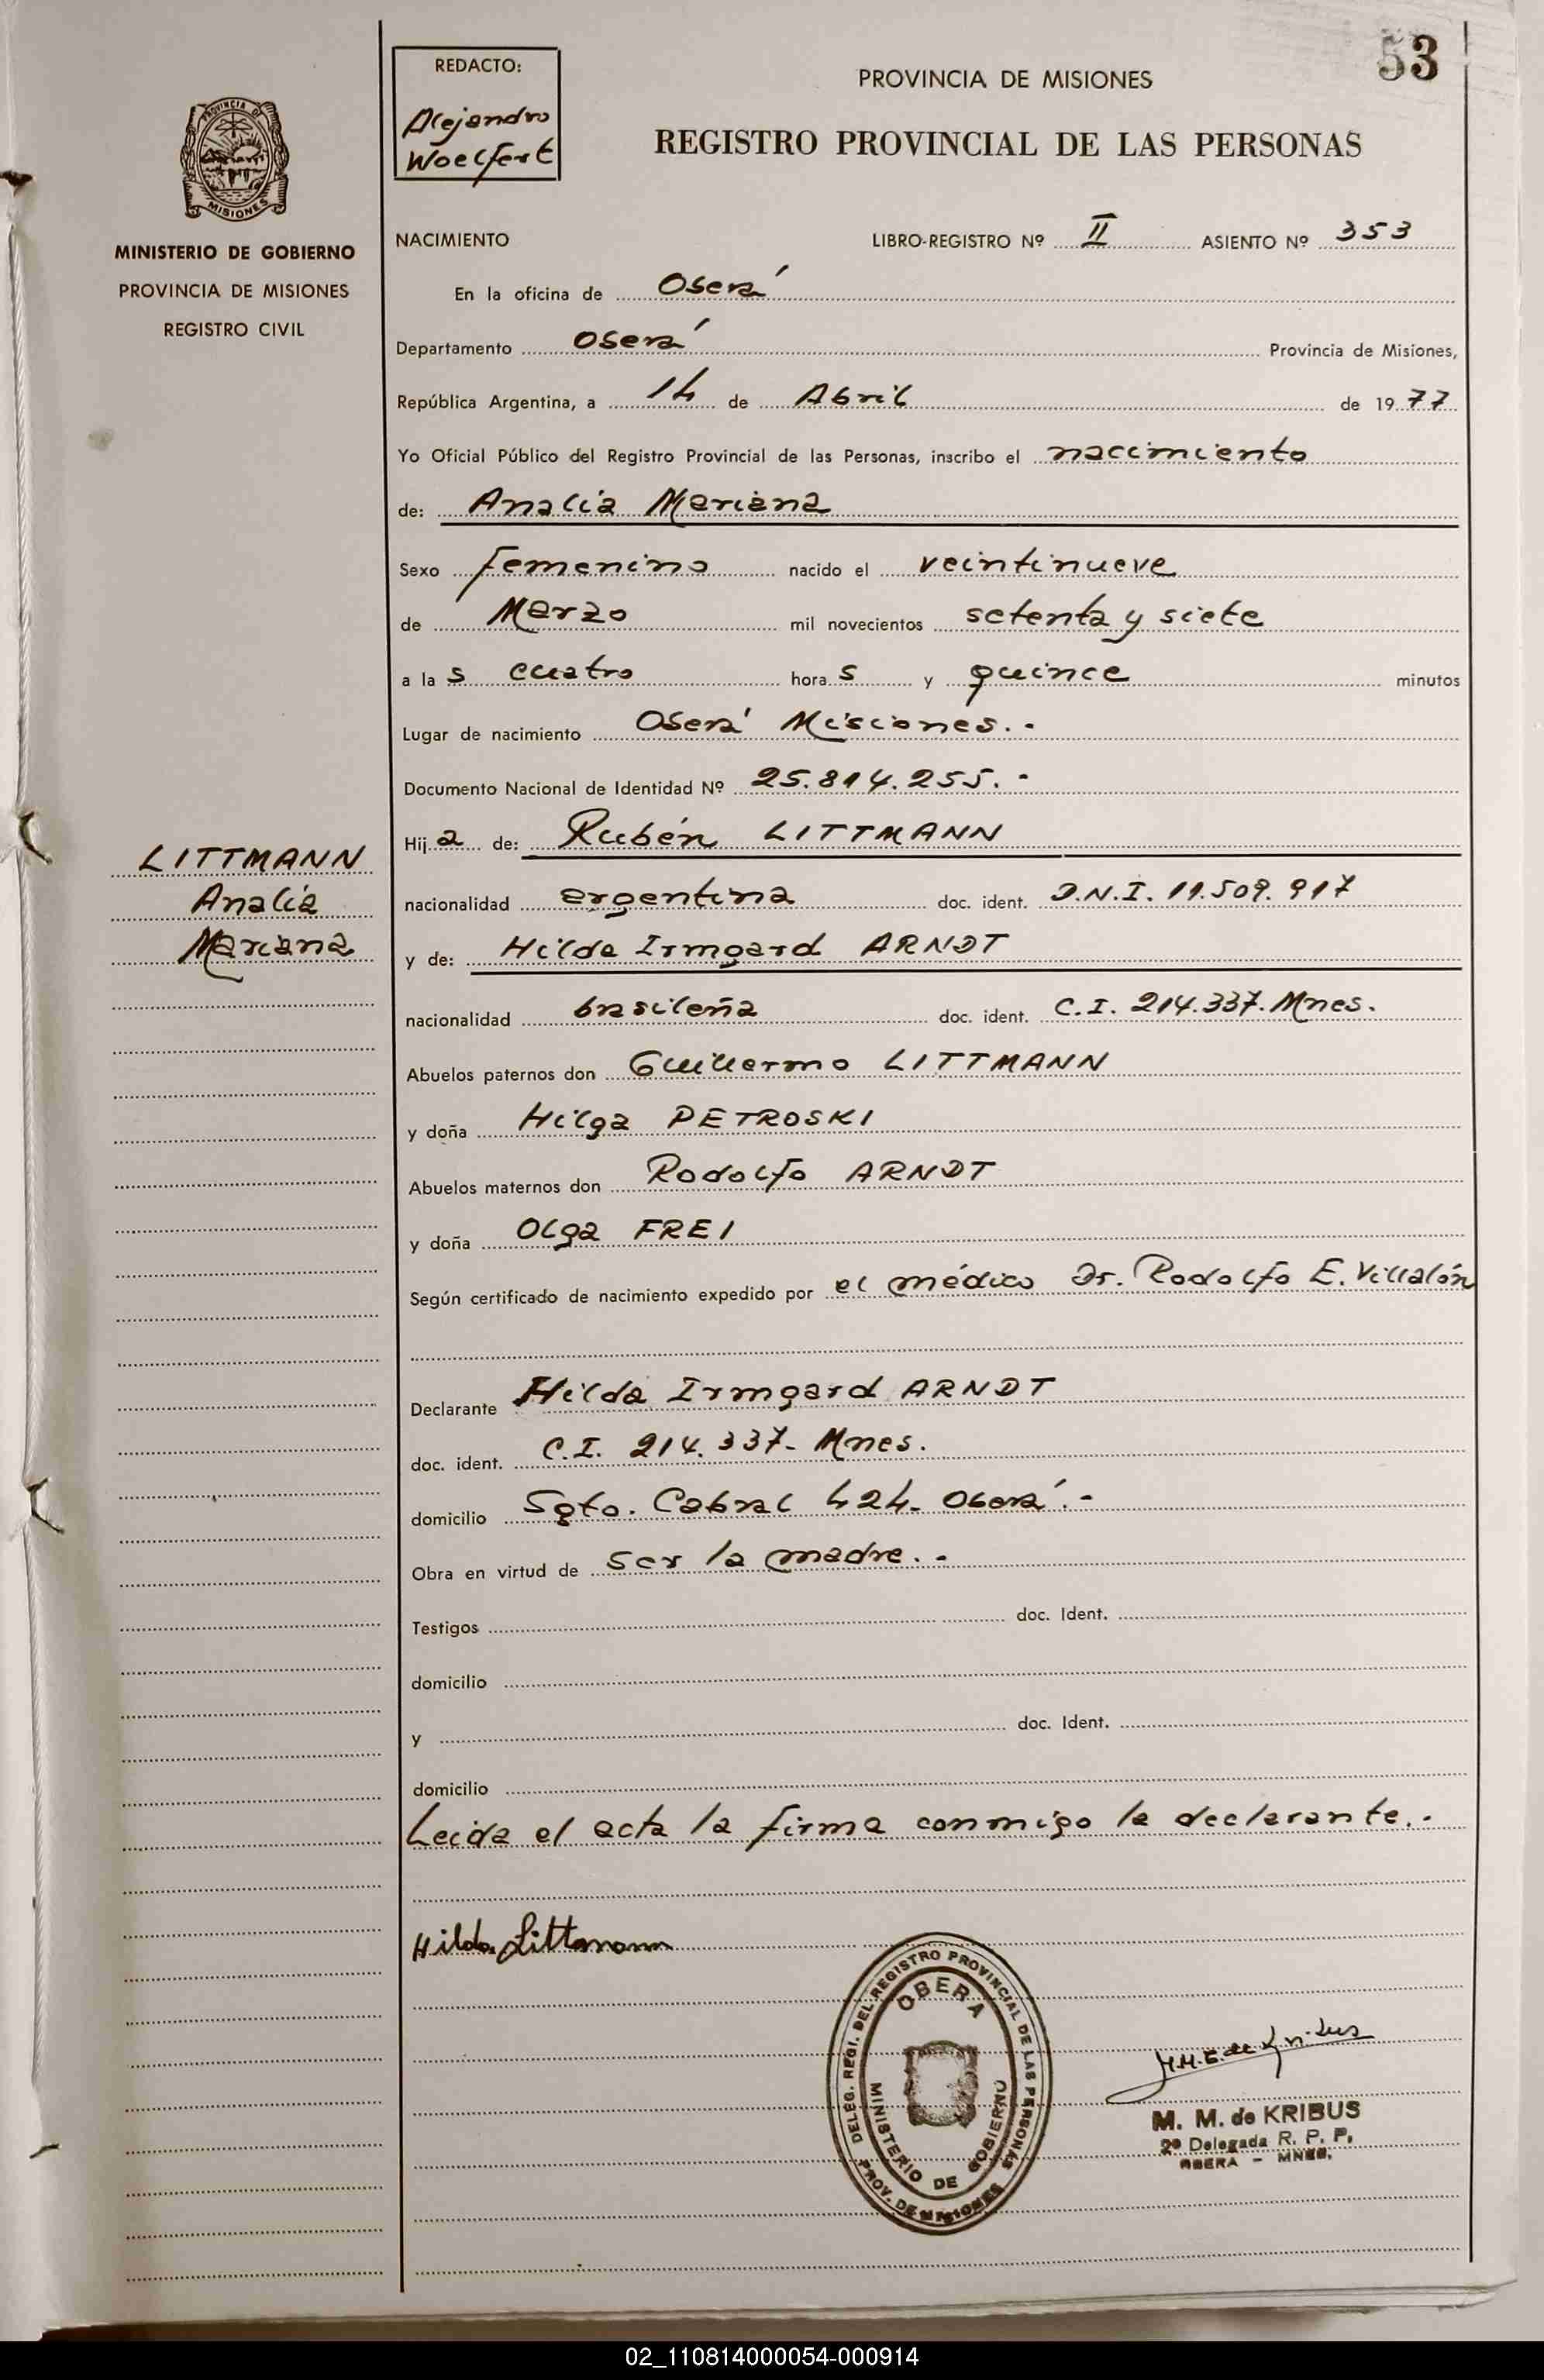 53
REDACTO:
Alejandro
Woelfert
PROVINCIA DE MISIONES
REGISTRO PROVINCIAL DE LAS PERSONAS
PROVINCIA DE
MISIONES
MINISTERIO DE GOBIERNO
PROVINCIA DE MISIONES
REGISTRO CIVIL
NACIMIENTO LIBRO-REGISTRO Nº II ASIENTO Nº 353
En la oficina de Oberá
Departamento Oberá Provincia de Misiones,
República Argentina, a 14 de Abril de 1977
Yo Oficial Público del Registro Provincial de las Personas, inscribo el nacimiento
de: Analia Mariana
Sexo femenino nacido el veintinueve
de Marzo mil novecientos setenta y siete
a la s cuatro hora s y quince minutos
Lugar de nacimiento Oberá Misiones.-
Documento Nacional de Identidad Nº 25.814.255.-
Hij a de: Rubén LITTMANN
LITTMANN
Analia
Mariana
nacionalidad argentina doc. ident. D.N.I. 11.509.917
y de: Hilda Irmgard ARNDT
nacionalidad brasileña doc. ident. C.I. 214.337. Mnes.
Abuelos paternos don Guillermo LITTMANN
y doña Hilga PETROSKI
Abuelos maternos don Rodolfo ARNDT
y doña Olga FREI
Según certificado de nacimiento expedido por el médico Dr. Rodolfo E. Villalón
Declarante Hilda Irmgard ARNDT
doc. ident. C.I. 214.337- Mnes.
domicilio Sgto. Cabral 424- Oberá.-
Obra en virtud de ser la madre.-
Testigos doc. Ident.
domicilio
y doc. Ident.
domicilio
Leida el acta la firma conmigo la declarante.-
Hilda Littmann
DELEG. REGI. DEL REGISTRO PROVINCIAL DE LAS PERSONAS
OBERA
MINISTERIO DE GOBIERNO
PROV. DE MISIONES
M. M. de KRIBUS
2ª Delegada R. P. P.
OBERA - MNES.
02_110814000054-000914